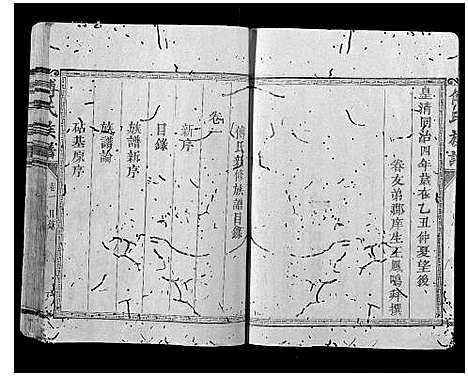 傅氏族譜
皇清同治四年歲在乙丑仲夏望後
眷友弟郡庠生王鳳鳴拜撰
傅氏新修族譜目錄
卷一
新序
目錄
族譜新序
族譜論
砧基原序
傅氏族譜
卷一 目錄